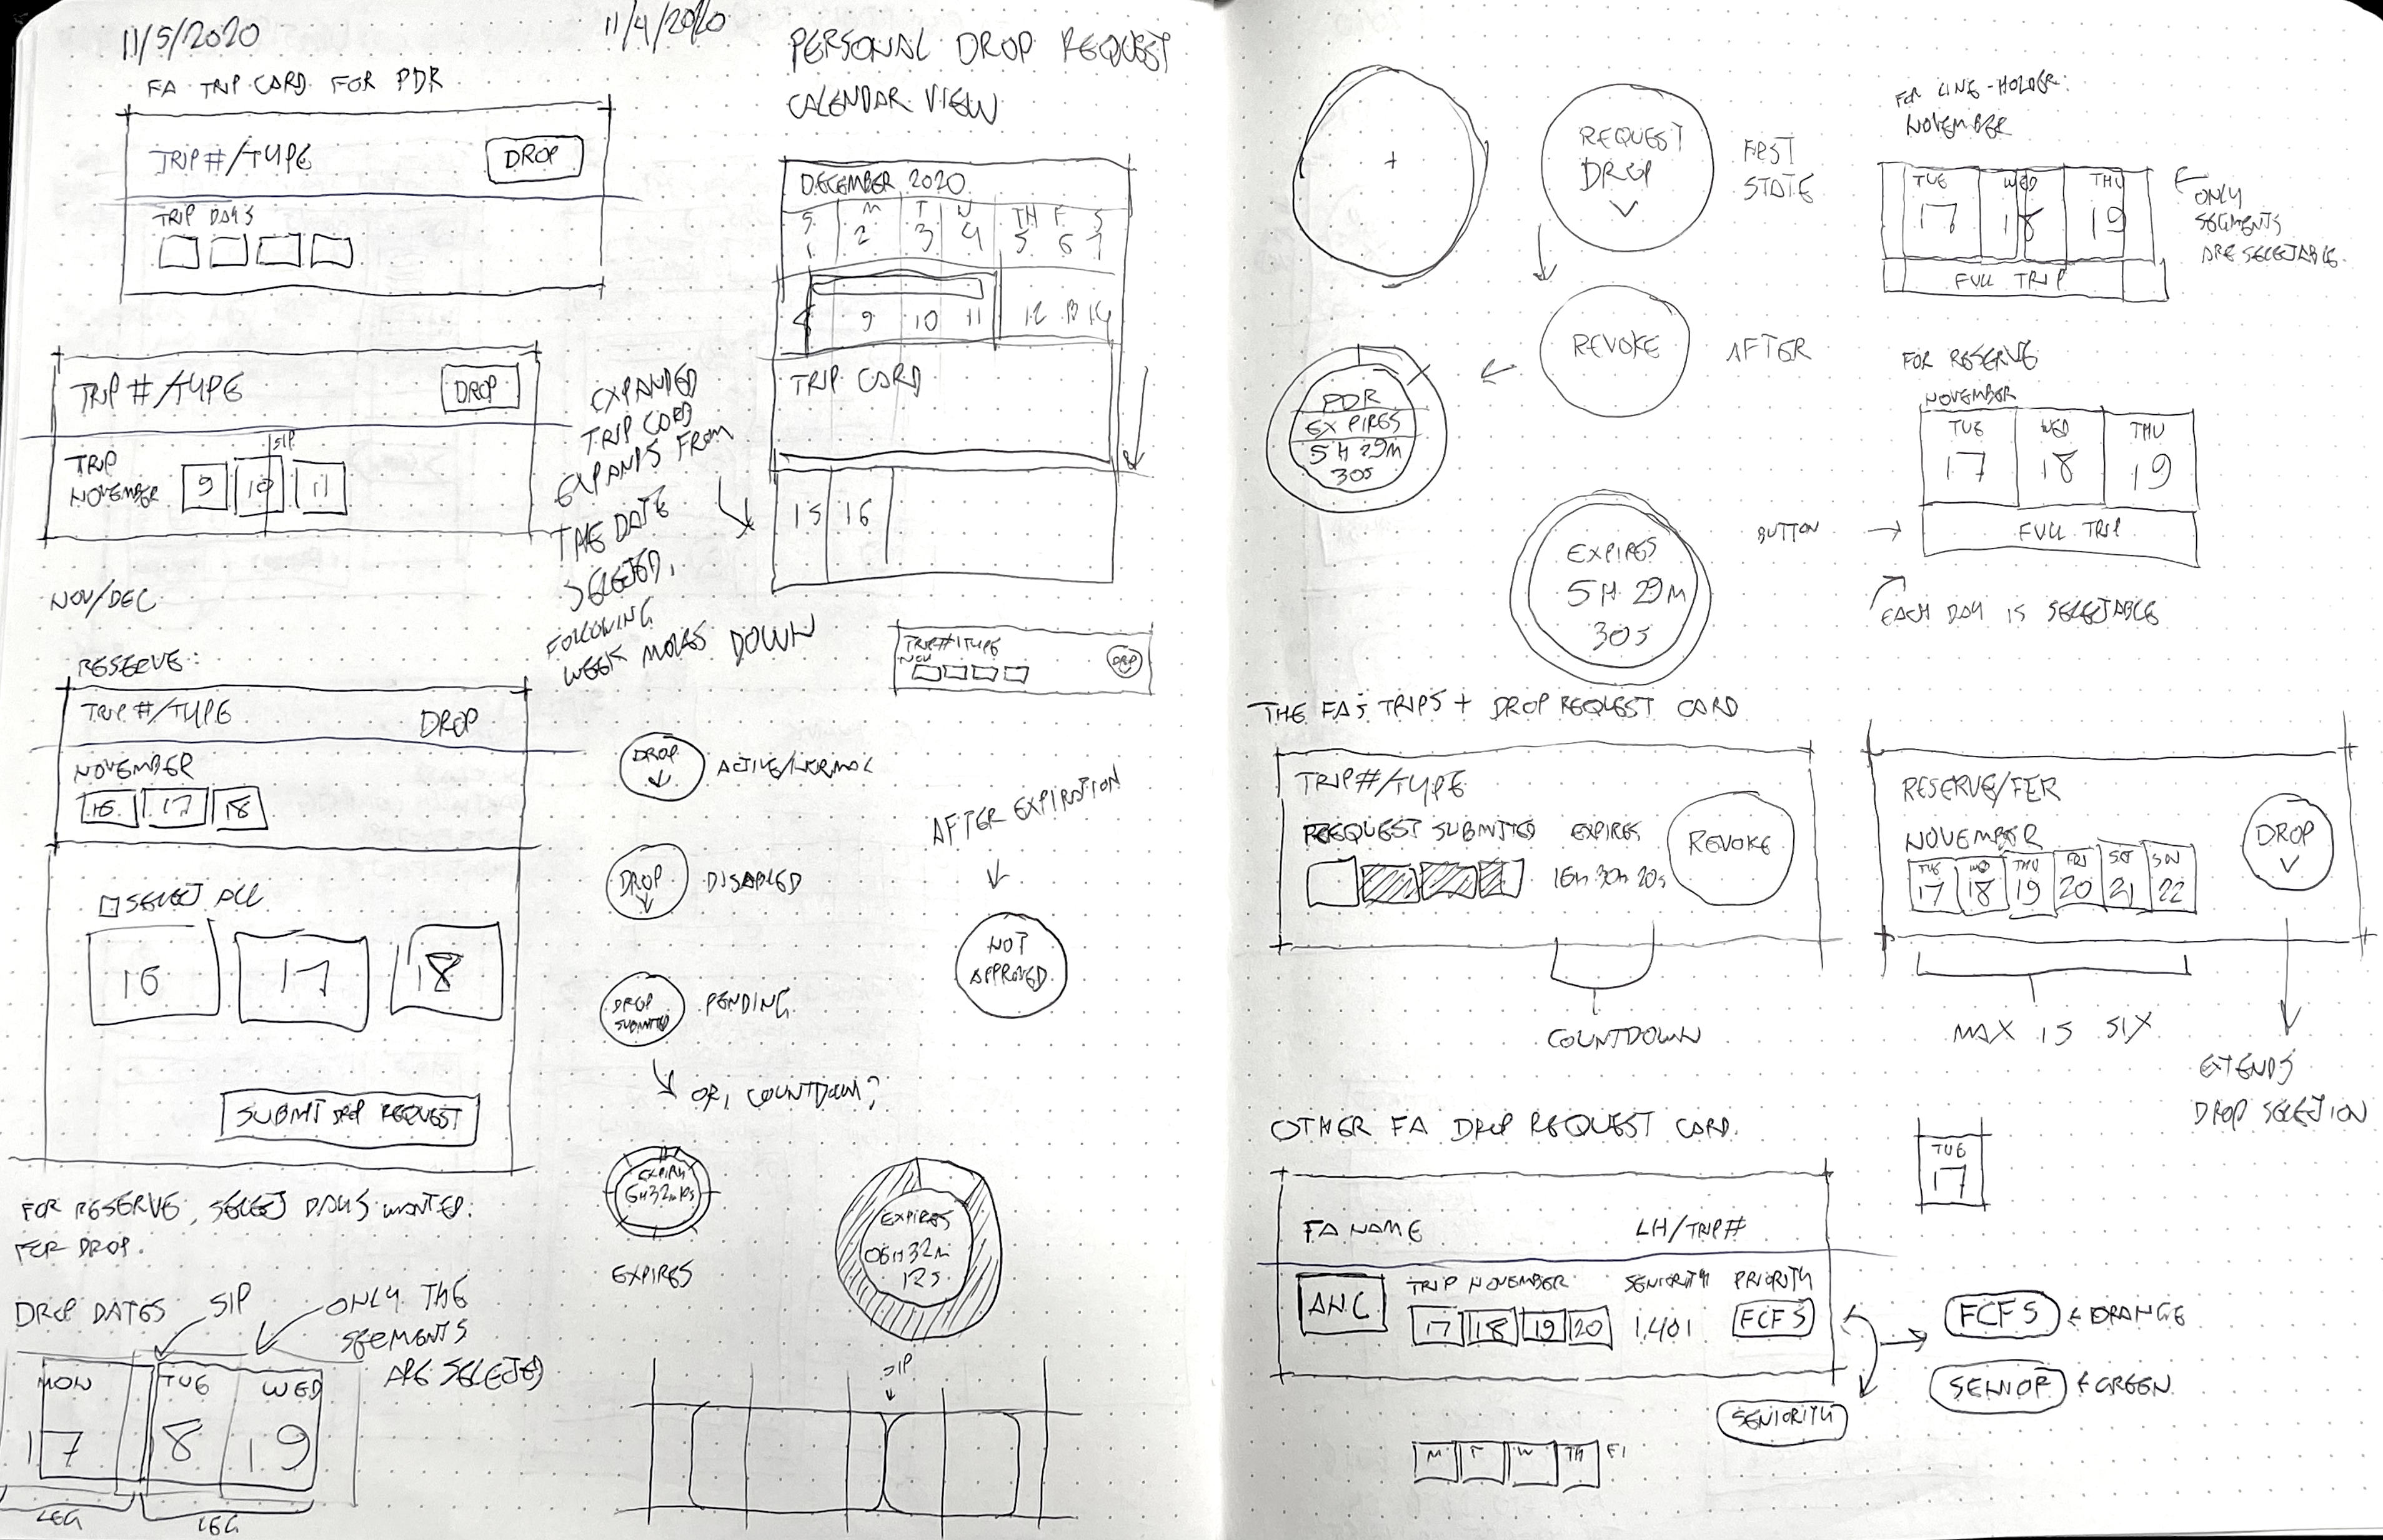 11/5/2020
FA TRIP CARD FOR PDR
TRIP #/TYPE
DROP
TRIP DAYS
TRIP #/TYPE
DROP
SIP
TRIP
NOVEMBER
9 10 11
NOV/DEC
RESERVE:
TRIP #/TYPE
DROP
NOVEMBER
16 17 18
SELECT ALL
16 17 18
SUBMIT DROP REQUEST
FOR RESERVE, SELECT DAYS WANTED
FOR DROP.
DROP DATES
SIP
ONLY THE
SEGMENTS
ARE SELECTED
MON TUE WED
17 18 19
LEG LEG
11/4/2020
PERSONAL DROP REQUEST
CALENDAR VIEW
DECEMBER 2020
S M T W TH F S
1 2 3 4 5 6 7
8 9 10 11 12 13 14
TRIP CARD
15 16
EXPANDED
TRIP CARD
EXPANDS FROM
THE DATE
SELECTED,
FOLLOWING
WEEK MOVES DOWN
TRIP#/TYPE
NOV
DROP
DROP
ACTIVE/NORMAL
DROP
DISABLED
DROP
SUBMITTED
PENDING
OR, COUNTDOWN?
EXPIRES
AFTER EXPIRATION
NOT
APPROVED
EXPIRES
06H 32M
12S
SIP
+
REQUEST
DROP
FIRST
STATE
REVOKE
AFTER
PDR
EXPIRES
5H 29M
30S
EXPIRES
5H 29M
30S
FOR LINE-HOLDER:
NOVEMBER
TUE WED THU
17 18 19
FULL TRIP
ONLY
SEGMENTS
ARE SELECTABLE
FOR RESERVE
NOVEMBER
TUE WED THU
17 18 19
FULL TRIP
BUTTON
EACH DAY IS SELECTABLE
THE FA'S TRIPS + DROP REQUEST CARD
TRIP#/TYPE
REQUEST SUBMITTED EXPIRES
16H 30M 20S
REVOKE
COUNTDOWN
NOVEMBER
TUE WED THU FRI SAT SUN
17 18 19 20 21 22
DROP
MAX IS SIX
EXTENDS
DROP SELECTION
OTHER FA DROP REQUEST CARD
TUE
17
FA NAME
LH/TRIP#
ANC
TRIP NOVEMBER
17 18 19 20
SENIORITY
1,401
PRIORITY
FCFS
FCFS
ORANGE
SENIOR
GREEN
SENIORITY
M T W TH F